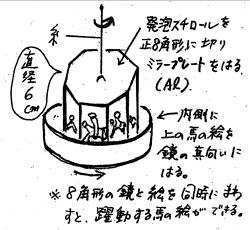 糸
発泡スチロールを
正8角形に切り
ミラープレートをはる。
(AL)
直径6cm
内側に
上の馬の絵を
鏡の真向いに
はる。
※8角形の鏡と絵を同時にまわ
すと、躍動する馬の絵ができる。